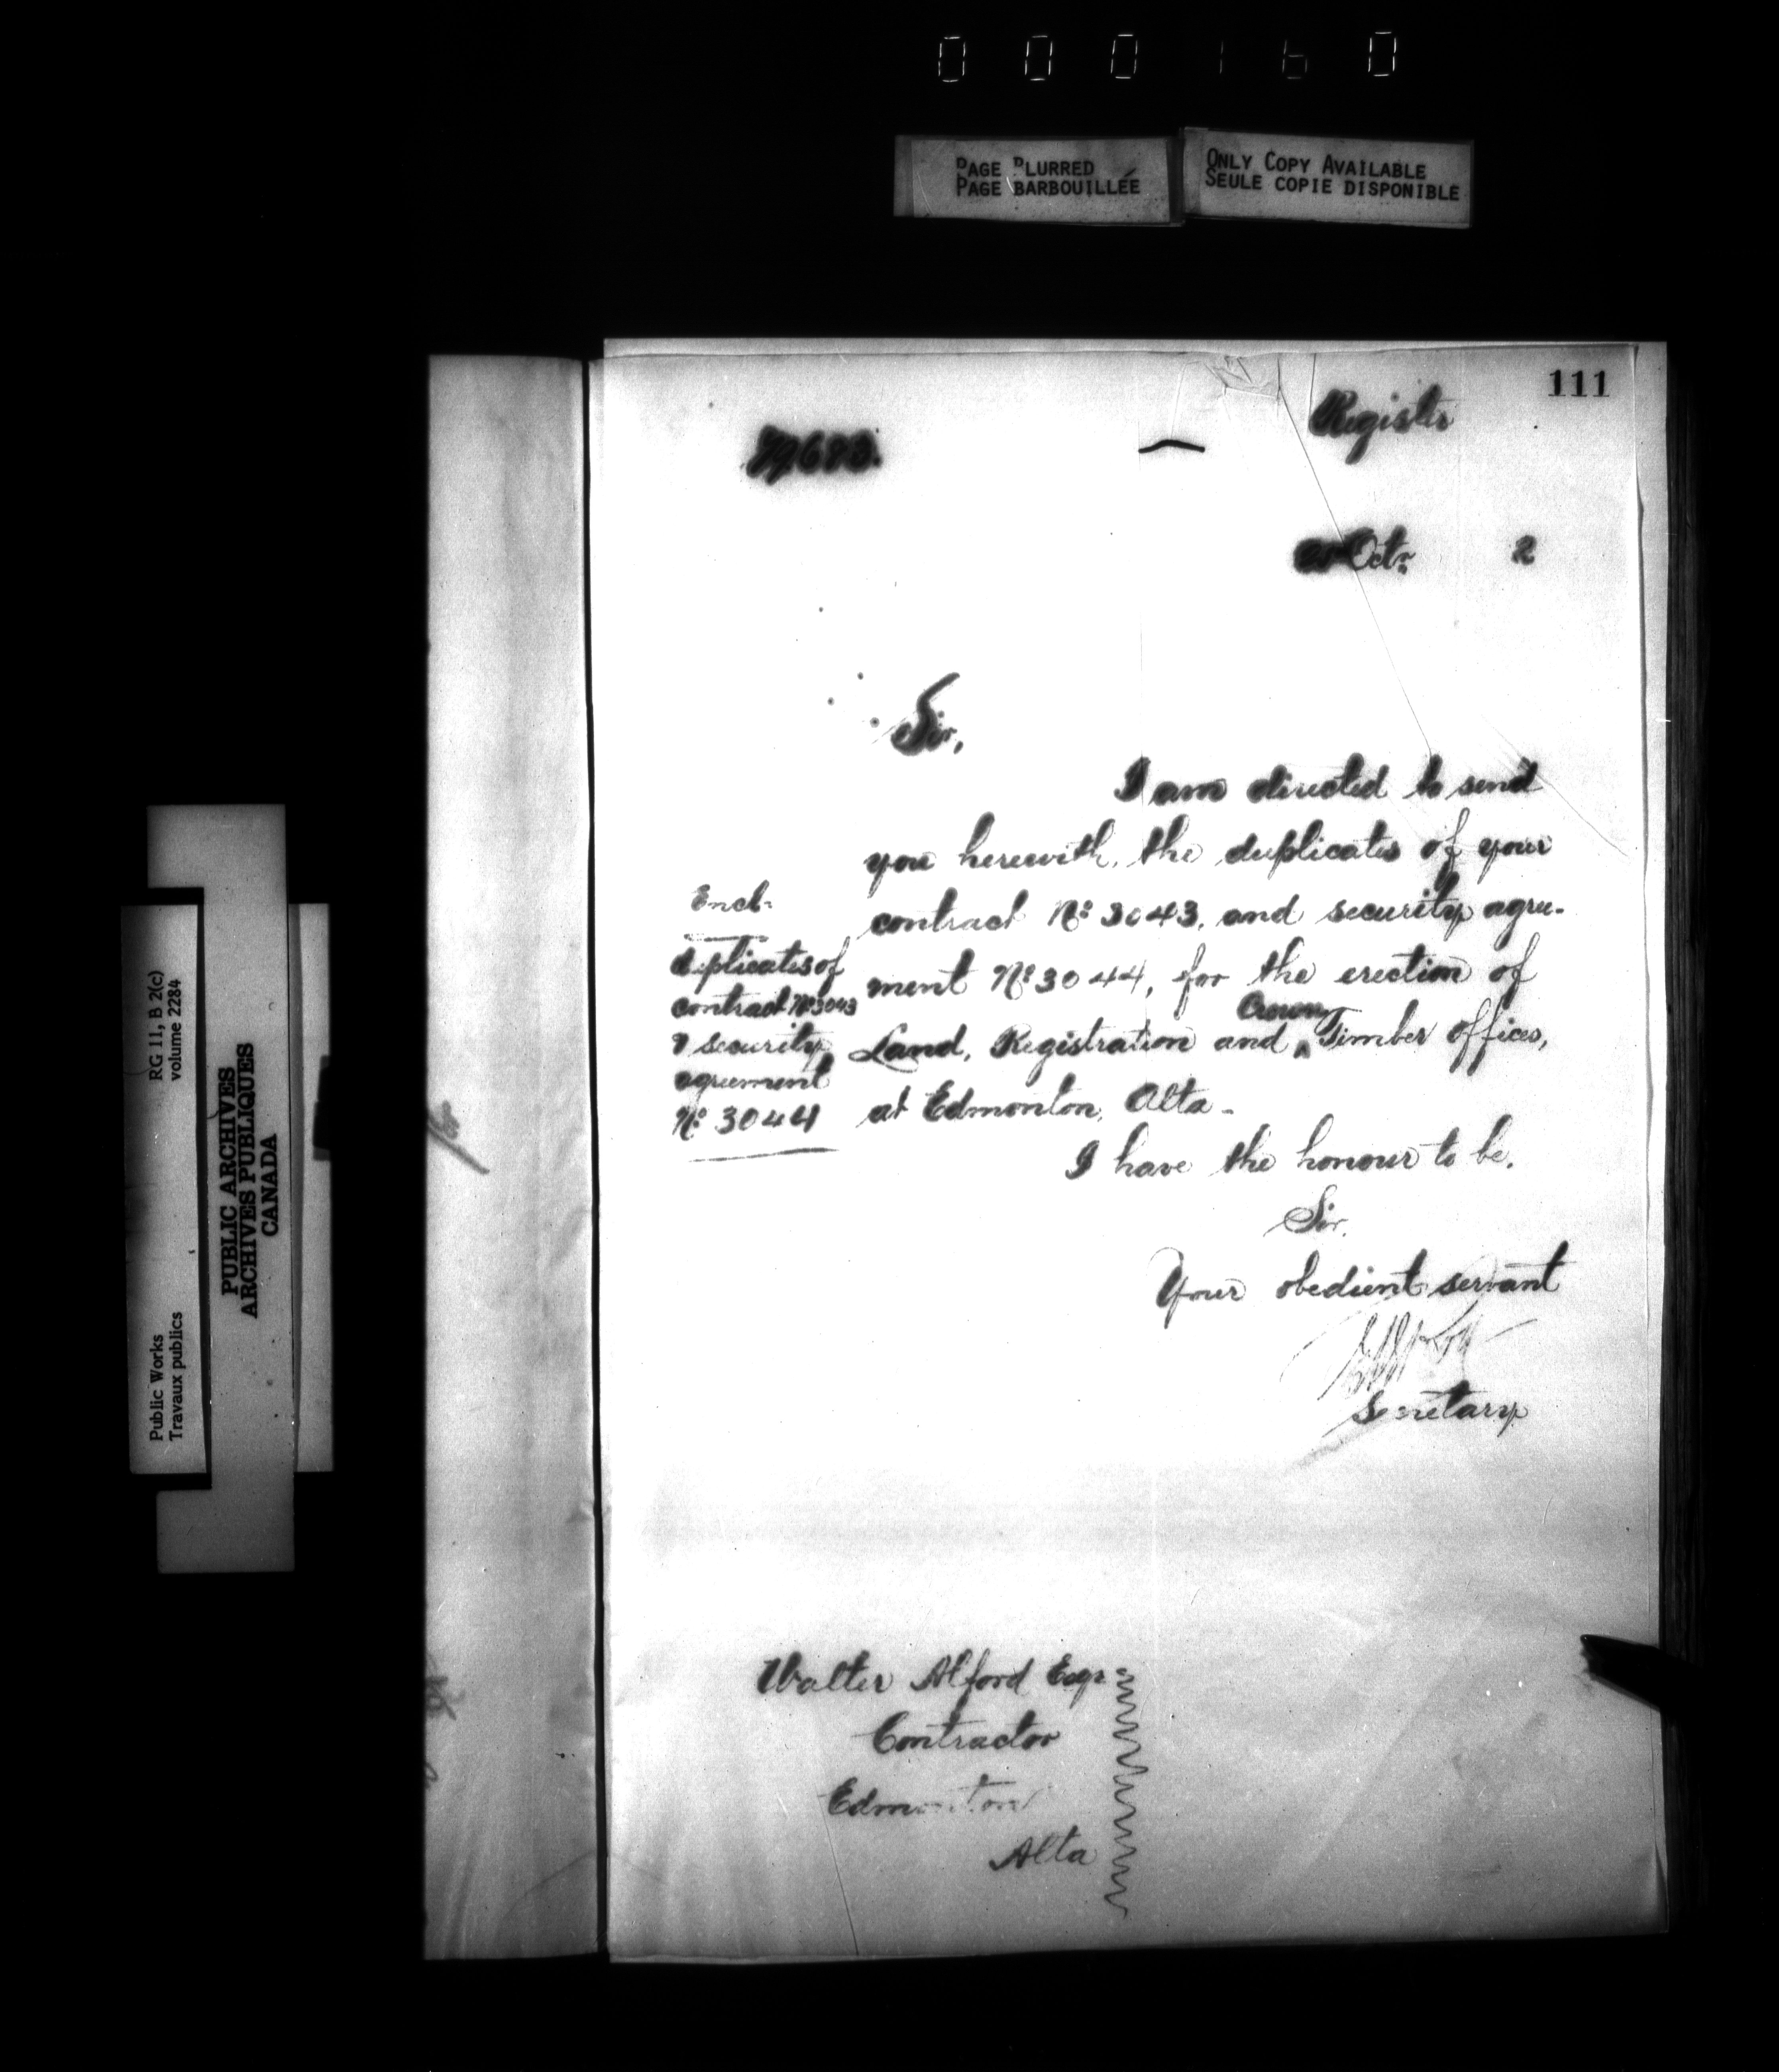 000160
PAGE BLURRED
PAGE BARBOUILLÉE
ONLY COPY AVAILABLE
SEULE COPIE DISPONIBLE
111
Register
Octr. 2
Sir,
I am directed to send
you herewith, the duplicates of your
contract No. 3043, and security agree-
ment No. 3044, for the erection of
Land, Registration and Crown Timber offices,
at Edmonton, Alta.
Encl.
duplicates of
contract No. 3043
& security
agreement
No. 3044
I have the honour to be,
Sir,
Your obedient servant
Secretary
Walter Alford Esqr.
Contractor
Edmonton
Alta
RG 11, B 2(c)
volume 2284
Public Works
Travaux publics
PUBLIC ARCHIVES
ARCHIVES PUBLIQUES
CANADA